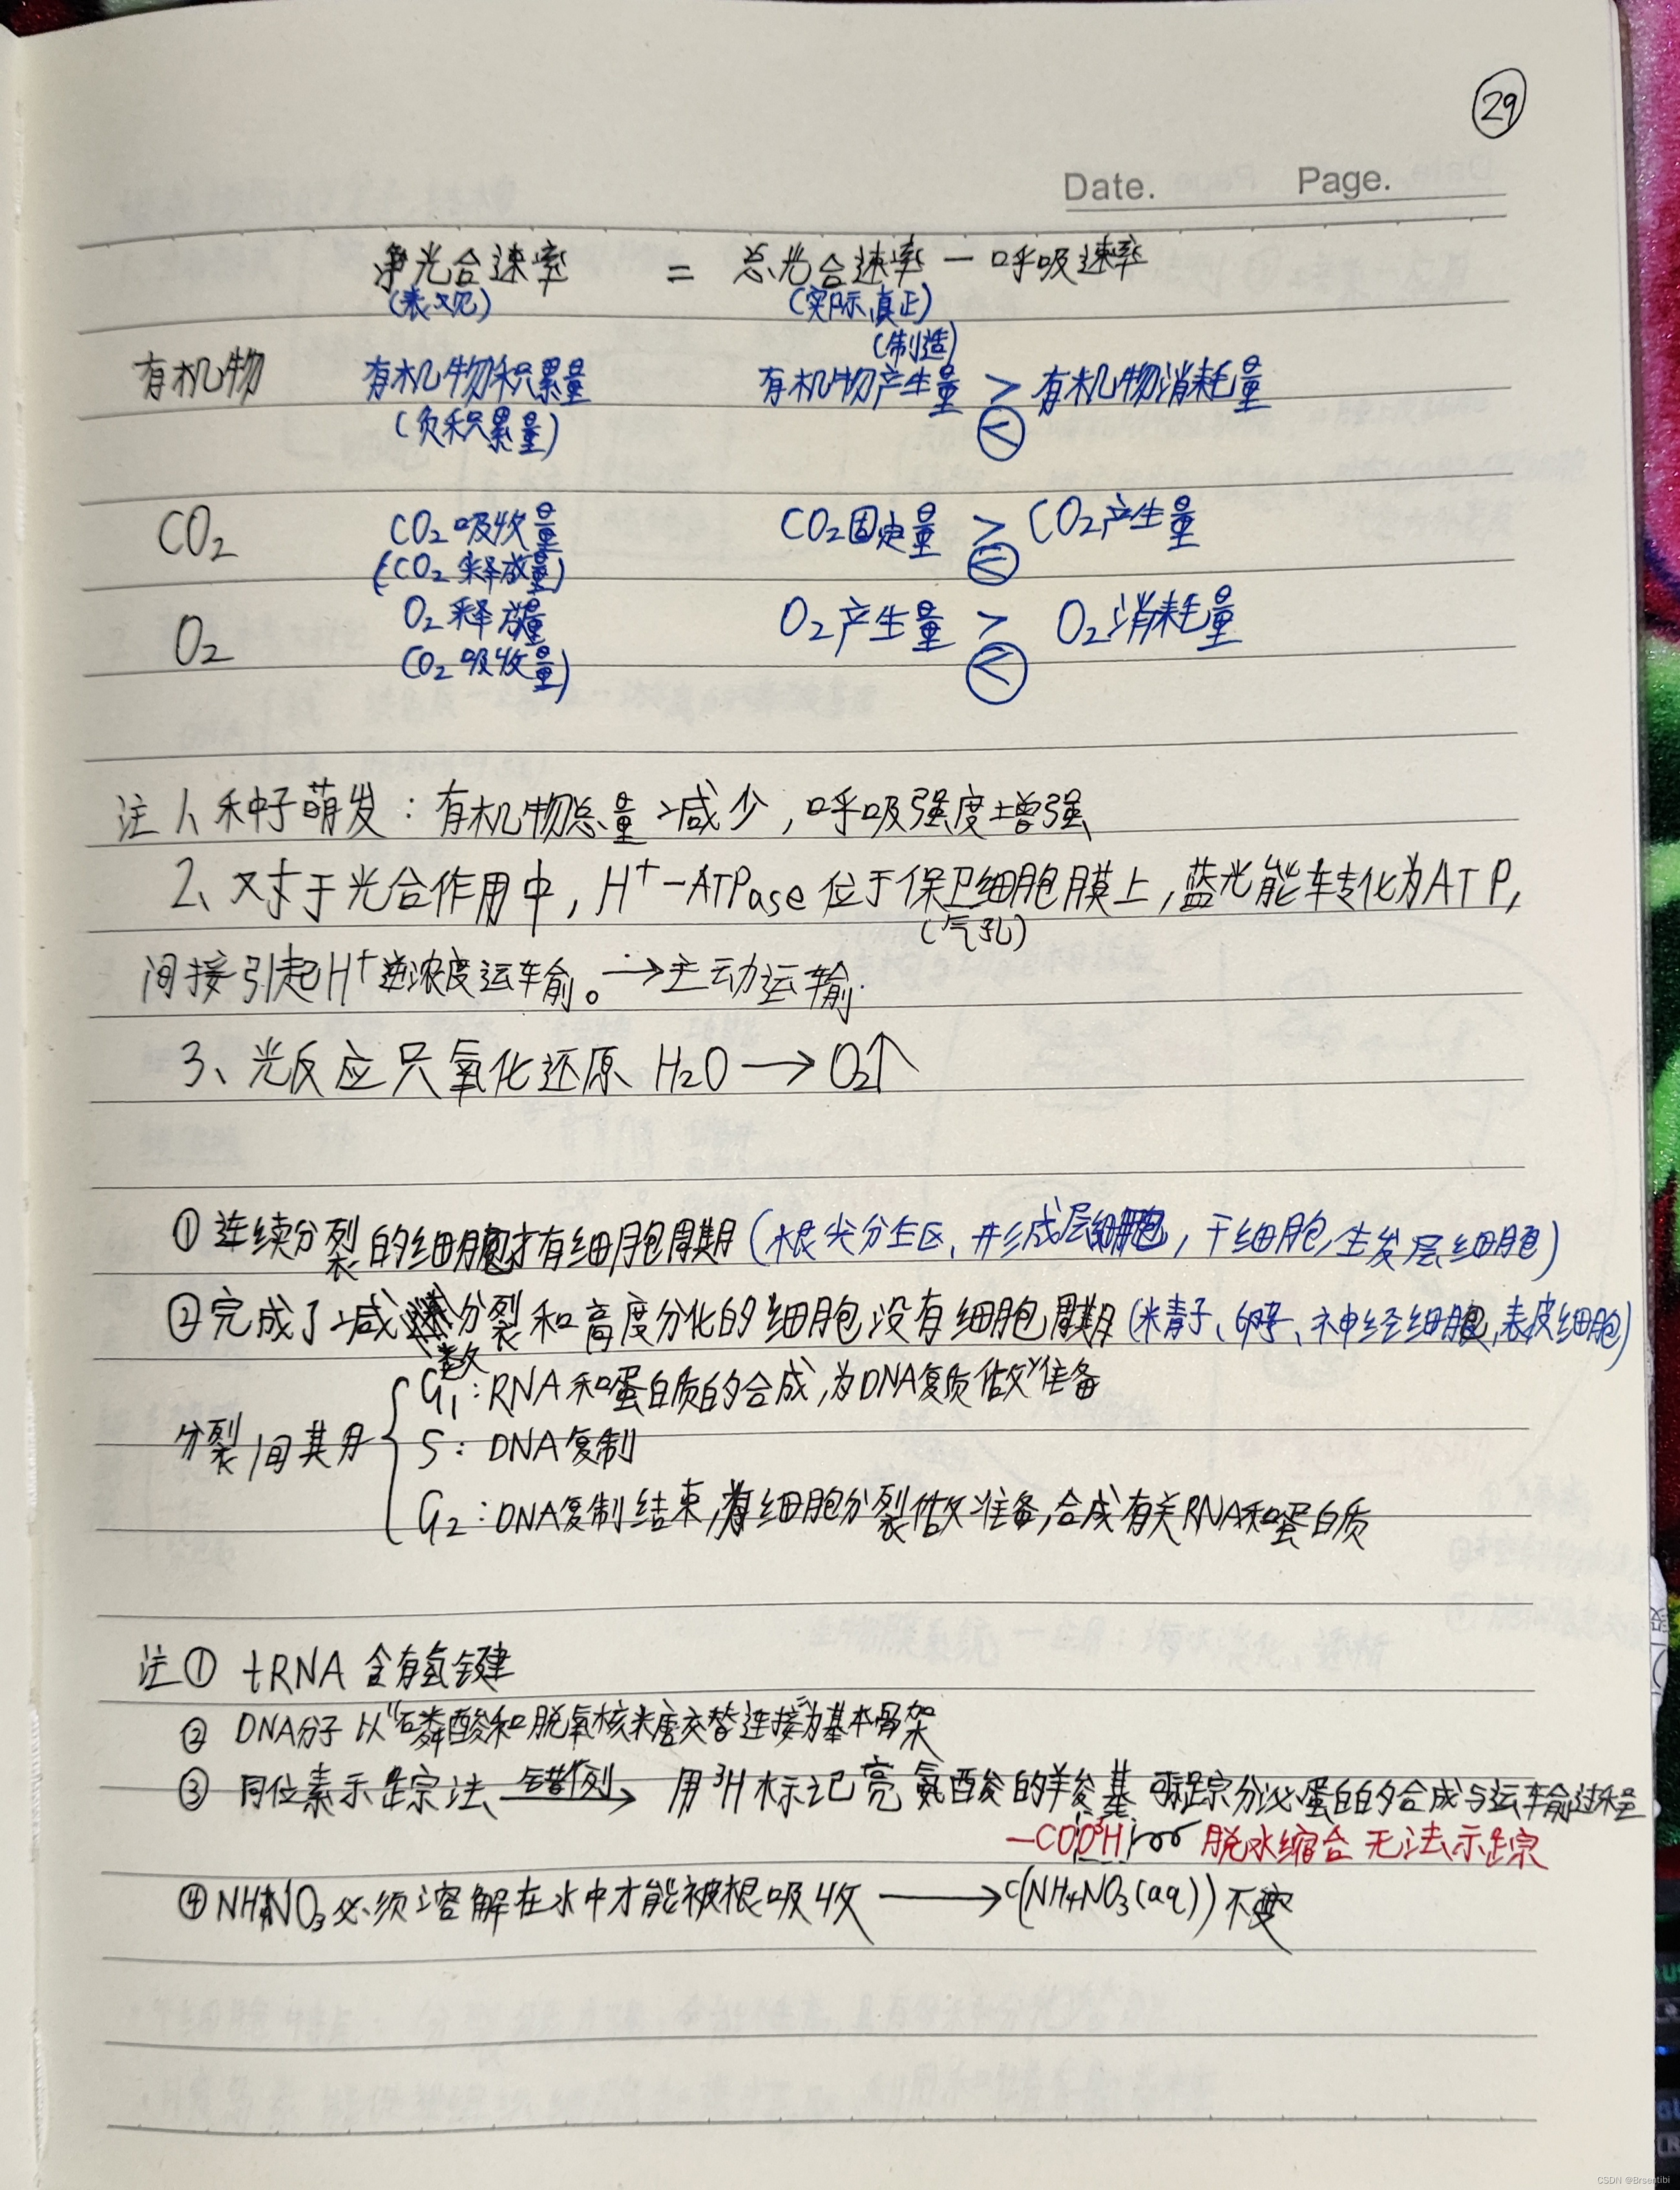 29
Date. Page.
净光合速率 = 总光合速率 - 呼吸速率
(表观) (实际,真正)
(制造)
有机物 有机物积累量 有机物产生量 > 有机物消耗量
(负积累量) <
CO₂ CO₂吸收量 CO₂固定量 > CO₂产生量
(CO₂释放量) <
O₂ O₂释放量 O₂产生量 > O₂消耗量
(O₂吸收量) <
注 1、种子萌发:有机物总量减少,呼吸强度增强
2、对于光合作用中,H⁺-ATPase位于保卫细胞膜上,蓝光能转化为ATP,
(气孔)
间接引起H⁺逆浓度运输。→主动运输.
3、光反应只氧化还原 H₂O → O₂↑
①连续分裂的细胞才有细胞周期(根尖分生区、形成层细胞,干细胞,生发层细胞)
②完成了减数分裂和高度分化的细胞没有细胞周期(精子、卵子、神经细胞,表皮细胞)
分裂间期
G₁:RNA和蛋白质的合成,为DNA复质做准备
S:DNA复制
G₂:DNA复制结束,为细胞分裂做准备,合成有关RNA和蛋白质
注① tRNA 含有氢键
② DNA分子以“磷酸和脱氧核糖交替连接”为基本骨架
③ 同位素示踪法 错例→ 用³H标记亮氨酸的羧基 可示踪分泌蛋白的合成与运输过程
-COO³H 脱水缩合 无法示踪
④ NH₄NO₃必须溶解在水中才能被根吸收 → c(NH₄NO₃(aq))不变
CSDN @Brsentibi